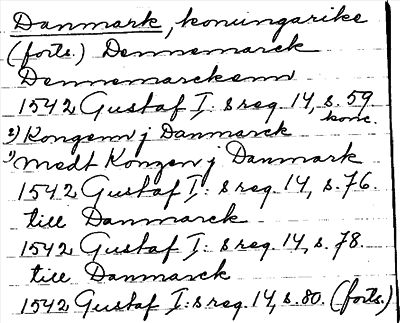 Danmark, konungarike
(forts.) Dennemarck
Dennemarckenn
1542 Gustaf I: s reg. 14, s. 59
konc.
2) Kongenn j Danmarck
1) medt Kongen j Danmark
1542 Gustaf I: s reg. 14, s. 76.
till Danmarck
1542 Gustaf I: s reg. 14, s. 78.
till Danmarck
1542 Gustaf I: s reg. 14, s. 80. (forts.)